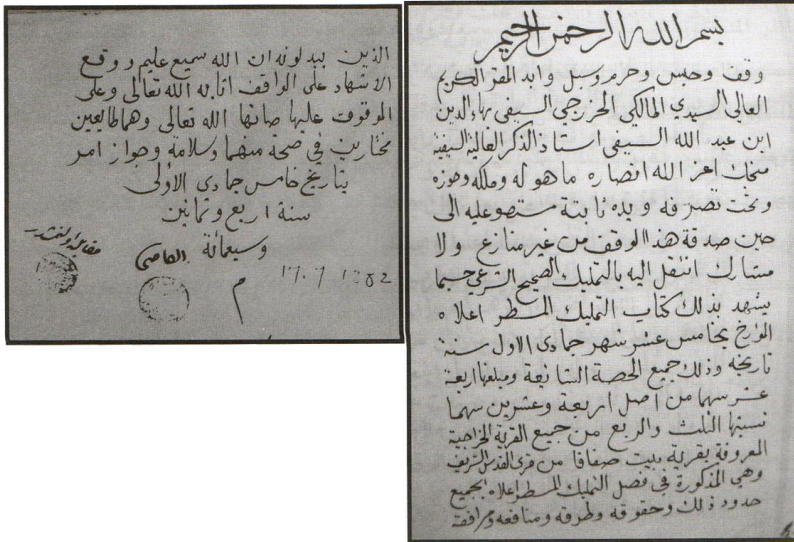 بسم الله الرحمن الرحيم
وقف وحبس وحرم وسبل وابد المقر الكريم
العالي السيدي المالكي الخزرجي السيفي بهاء الدين
ابن عبد الله السيفي استاذ الذكر العالية السيفية
منجك اعز الله انصاره ما هو له وملكه وحوزه
وتحت تصرفه ويده ثابتة مستمرة عليه الى
حين صدقة هذا الوقف من غير منازع ولا
مشارك انتقل اليه بالتمليك الصحيح الشرعي حسبما
يشهد بذلك كتاب التمليك المسطر اعلاه
المؤرخ بخامس عشر شهر جمادى الاول سنة
تاريخه وذلك جميع الحصة الشائعة ومبلغها اربعة
عشر سهما من اصل اربعة وعشرين سهما
نسبتها الثلث والربع من جميع القرية الخراجية
المعروفة بقرية بيت صفافا من قرى القدس الشريف
وهي المذكورة في فصل التمليك المسطر اعلاه بجميع
حدود ذلك وحقوقه وطرقه ومنافعه ومرافقه
الذين يبدلونه ان الله سميع عليم ووقع
الاشهاد على الواقف اثابه الله تعالى وعلى
الموقوف عليها صانها الله تعالى وهما طايعين
مختارين في صحة منهما وسلامة وجواز امر
بتاريخ خامس جمادى الأولى
سنة اربع وثمانين
وسبعمائة
القاضي
م